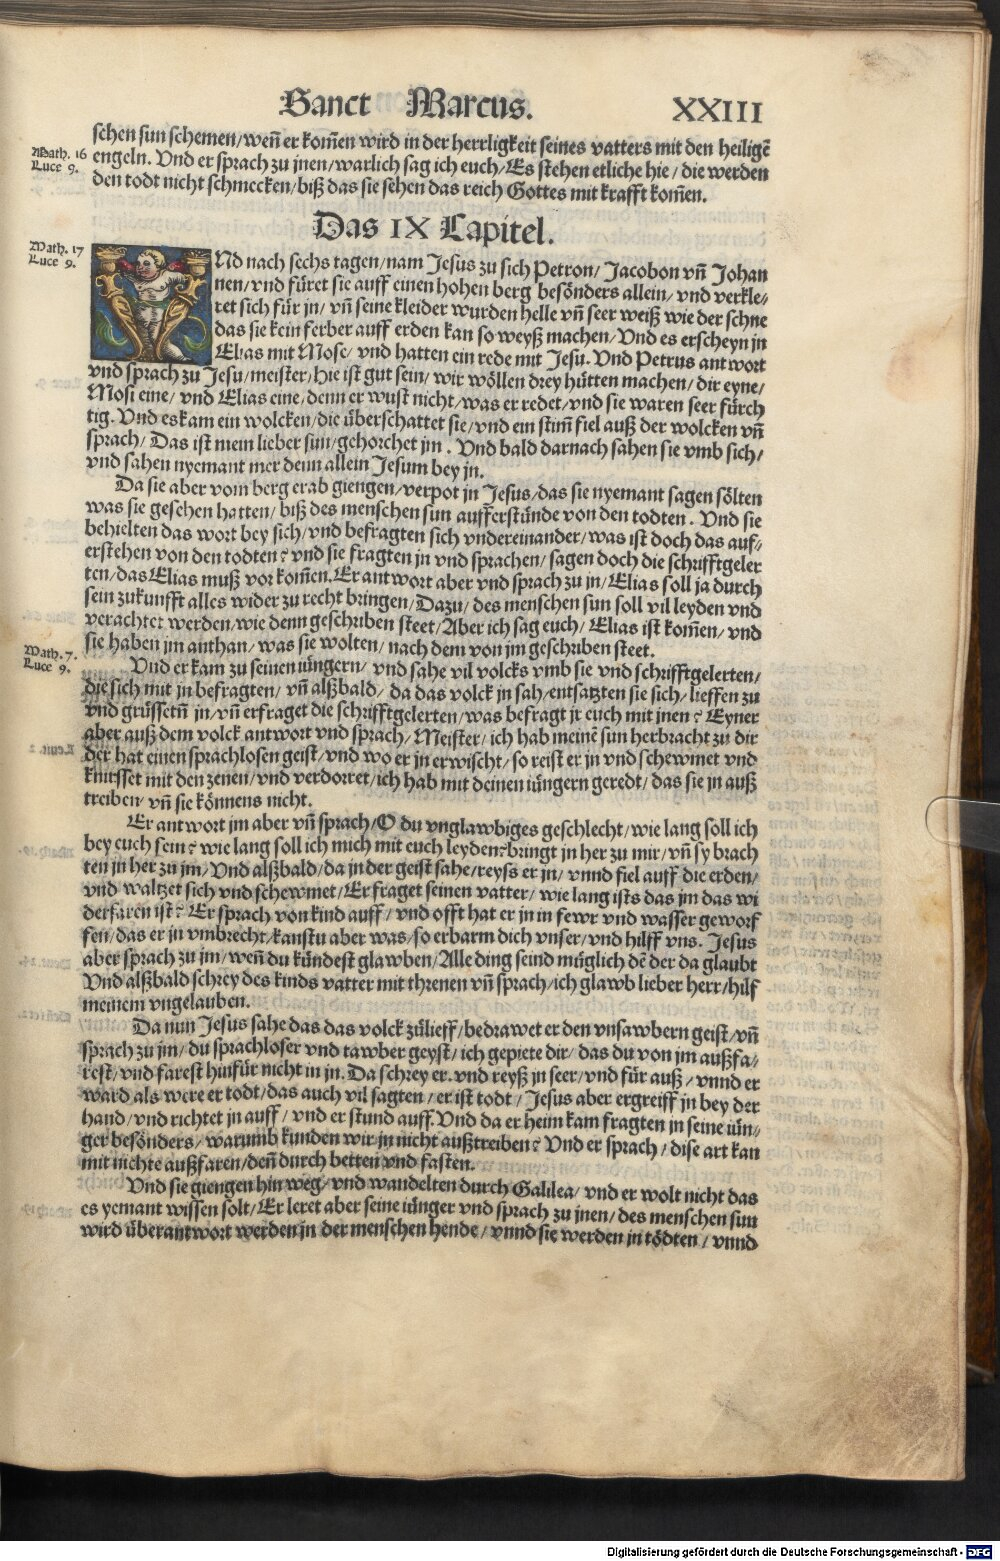 Sanct Marcus. XXIII
schen sun schemen/ weñ er kom̃en wird in der herrligkeit seines vatters mit den heiligẽ
Math. 16
Luce 9.
engeln. Vnd er sprach zu jnen/ warlich sag ich euch/ Es stehen etliche hie/ die werden
den todt nicht schmecken/ biß das sie sehen das reich Gottes mit krafft kom̃en.
Das IX Capitel.
Math. 17
Luce 9.
VNd nach sechs tagen/ nam Jesus zu sich Petron/ Jacobon vñ Johan
nen/ vnd füret sie auff einen hohen berg besönders allein/ vnd verkle⸗
ret sich für jn/ vñ seine kleider wurden helle vñ seer weiß wie der schne
das sie kein ferber auff erden kan so weyß machen/ Vnd es erscheyn jn
Elias mit Mose/ vnd hatten ein rede mit Jesu. Vnd Petrus antwort
vnd sprach zu Jesu/ meister/ hie ist gut sein/ wir wöllen drey hütten machen/ dir eyne/
Mosi eine/ vnd Elias eine/ denn er wust nicht/ was er redet/ vnd sie waren seer fürch
tig. Vnd es kam ein wolcken/ die überschattet sie/ vnd ein stim̃ fiel auß der wolcken vñ
sprach/ Das ist mein lieber sun/ gehorchet jm. Vnd bald darnach sahen sie vmb sich/
vnd sahen nyemant mer denn allein Jesum bey jn.
Da sie aber vom berg erab giengen/ verpot jn Jesus/ das sie nyemant sagen sölten
was sie gesehen hatten/ biß des menschen sun aufferstünde von den todten. Vnd sie
behielten das wort bey sich/ vnd befragten sich vndereinander/ was ist doch das auf⸗
erstehen von den todten? vnd sie fragten jn vnd sprachen/ sagen doch die schrifftgeler
ten/ das Elias muß vor kom̃en. Er antwort aber vnd sprach zu jn/ Elias soll ja durch
sein zukunfft alles wider zu recht bringen/ Dazu/ des menschen sun soll vil leyden vnd
verachtet werden/ wie denn geschriben steet/ Aber ich sag euch/ Elias ist kom̃en/ vnd
sie haben jm anthan/ was sie wolten/ nach dem von jm geschriben steet.
Math. 7.
Luce 9.
Vnd er kam zu seinen iüngern/ vnd sahe vil volcks vmb sie vnd schrifftgelerten/
die sich mit jn befragten/ vñ alßbald/ da das volck jn sah/ entsatzten sie sich/ lieffen zu
vnd grüssetñ jn/ vñ er fraget die schrifftgelerten/ was befragt jr euch mit jnen? Eyner
aber auß dem volck antwort vnd sprach/ Meister/ ich hab meinẽ sun herbracht zu dir
der hat einen sprachlosen geist/ vnd wo er jn erwischt/ so reist er jn vnd schewmet vnd
knirsset mit den zenen/ vnd verdorret/ ich hab mit deinen iüngern geredt/ das sie jn auß
treiben/ vñ sie könnens nicht.
Er antwort jm aber vñ sprach/ O du vnglawbiges geschlecht/ wie lang soll ich
bey euch sein? wie lang soll ich mich mit euch leyden? bringt jn her zu mir/ vñ sy brach
ten jn her zu jm/ Vnd alßbald/ da jn der geist sahe/ reyss er jn/ vnnd fiel auff die erden/
vnd waltzet sich vnd schewmet/ Er fraget seinen vatter/ wie lang ists das jm das wi
derfaren ist? Er sprach von kind auff/ vnd offt hat er jn in fewr vnd wasser geworf
fen/ das er jn vmbrecht/ kanstu aber was/ so erbarm dich vnser/ vnd hilff vns. Jesus
aber sprach zu jm/ weñ du kündest glawben/ Alle ding seind müglich dẽ der da glaubt
Vnd alßbald schrey des kinds vatter mit threnen vñ sprach/ ich glawb lieber herr/ hilf
meinem vngelauben.
Da nun Jesus sahe das das volck zůlieff/ bedrawet er den vnsawbern geist/ vñ
sprach zu jm/ du sprachloser vnd tawber geyst/ ich gepiete dir/ das du von jm außfa⸗
rest/ vnd farest hinfür nicht in jn. Da schrey er. vnd reyß jn seer/ vnd für auß/ vnnd er
ward als were er todt/ das auch vil sagten/ er ist todt/ Jesus aber ergreiff jn bey der
hand/ vnd richtet jn auff/ vnd er stund auff. Vnd da er heim kam fragten jn seine iün⸗
ger besönders/ warumb kunden wir jn nicht außtreiben? Vnd er sprach/ dise art kan
mit nichte außfaren/ deñ durch betten vnd fasten.
Vnd sie giengen hin weg/ vnd wandelten durch Galilea/ vnd er wolt nicht das
es yemant wissen solt/ Er leret aber seine iünger vnd sprach zu jnen/ des menschen sun
wird überantwort werden jn der menschen hende/ vnnd sie werden jn tödten/ vnnd
Digitalisierung gefördert durch die Deutsche Forschungsgemeinschaft - DFG